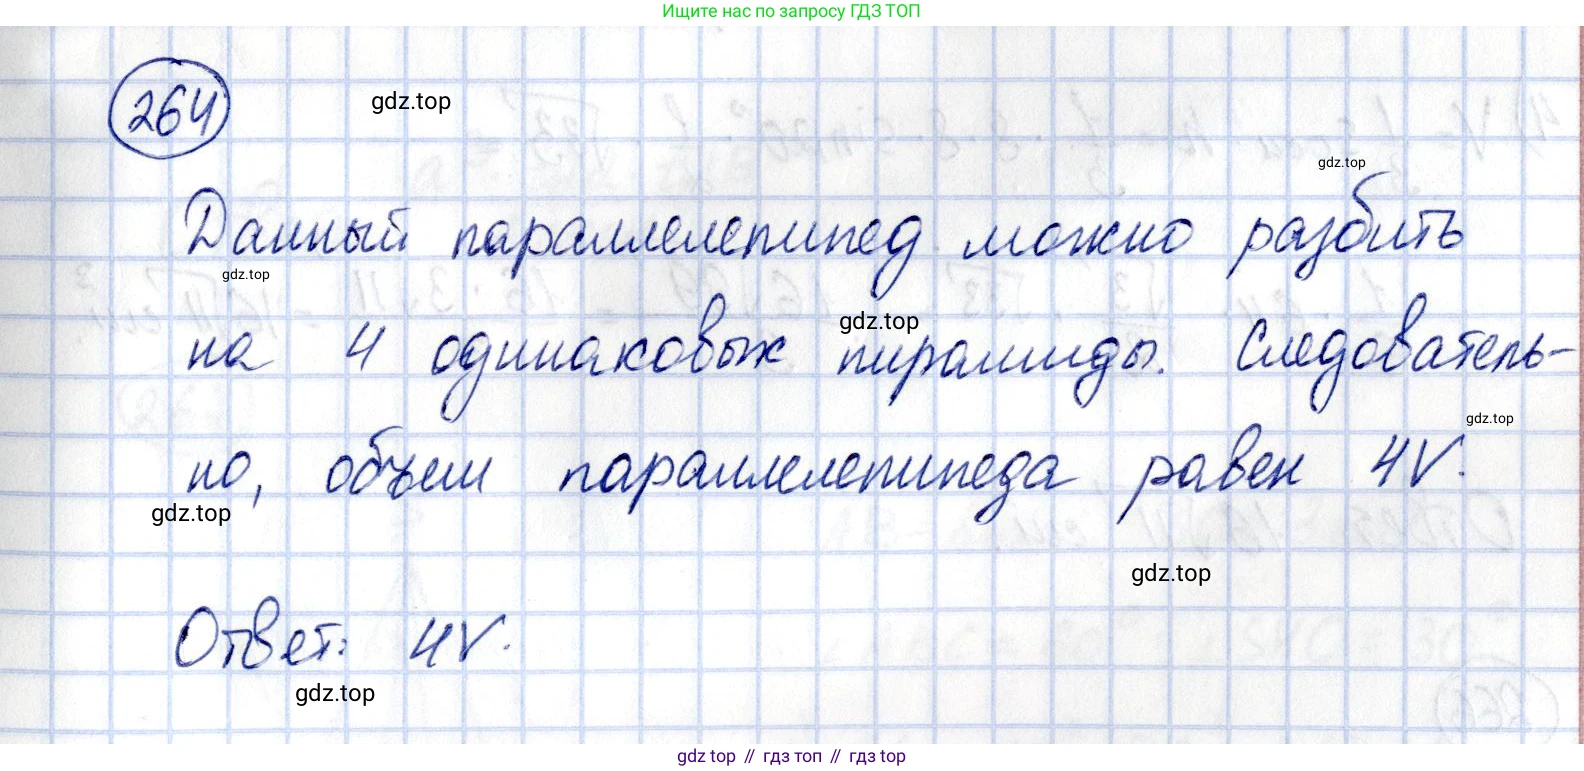 Ищите нас по запросу ГДЗ ТОП
264
gdz.top
gdz.top
Данный параллелепипед можно разбить
gdz.top
gdz.top
на 4 одинаковых пирамиды. Следователь-
gdz.top
но, объем параллелепипеда равен 4V.
gdz.top
gdz.top
Ответ: 4V.
gdz.top
gdz top // гдз топ // гдз top